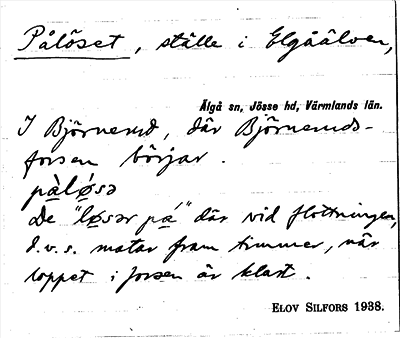 Pålöset, ställe i Elgåälven,
Älgå sn, Jösse hd, Värmlands län.
I Björnerud, där Björneruds-
forsen börjar.
pàlǿsə
De "lø̀sər pá" där vid flottningen,
d.v.s. matar fram timmer, når
loppet i forsen är klart.
ELOV SILFORS 1938.